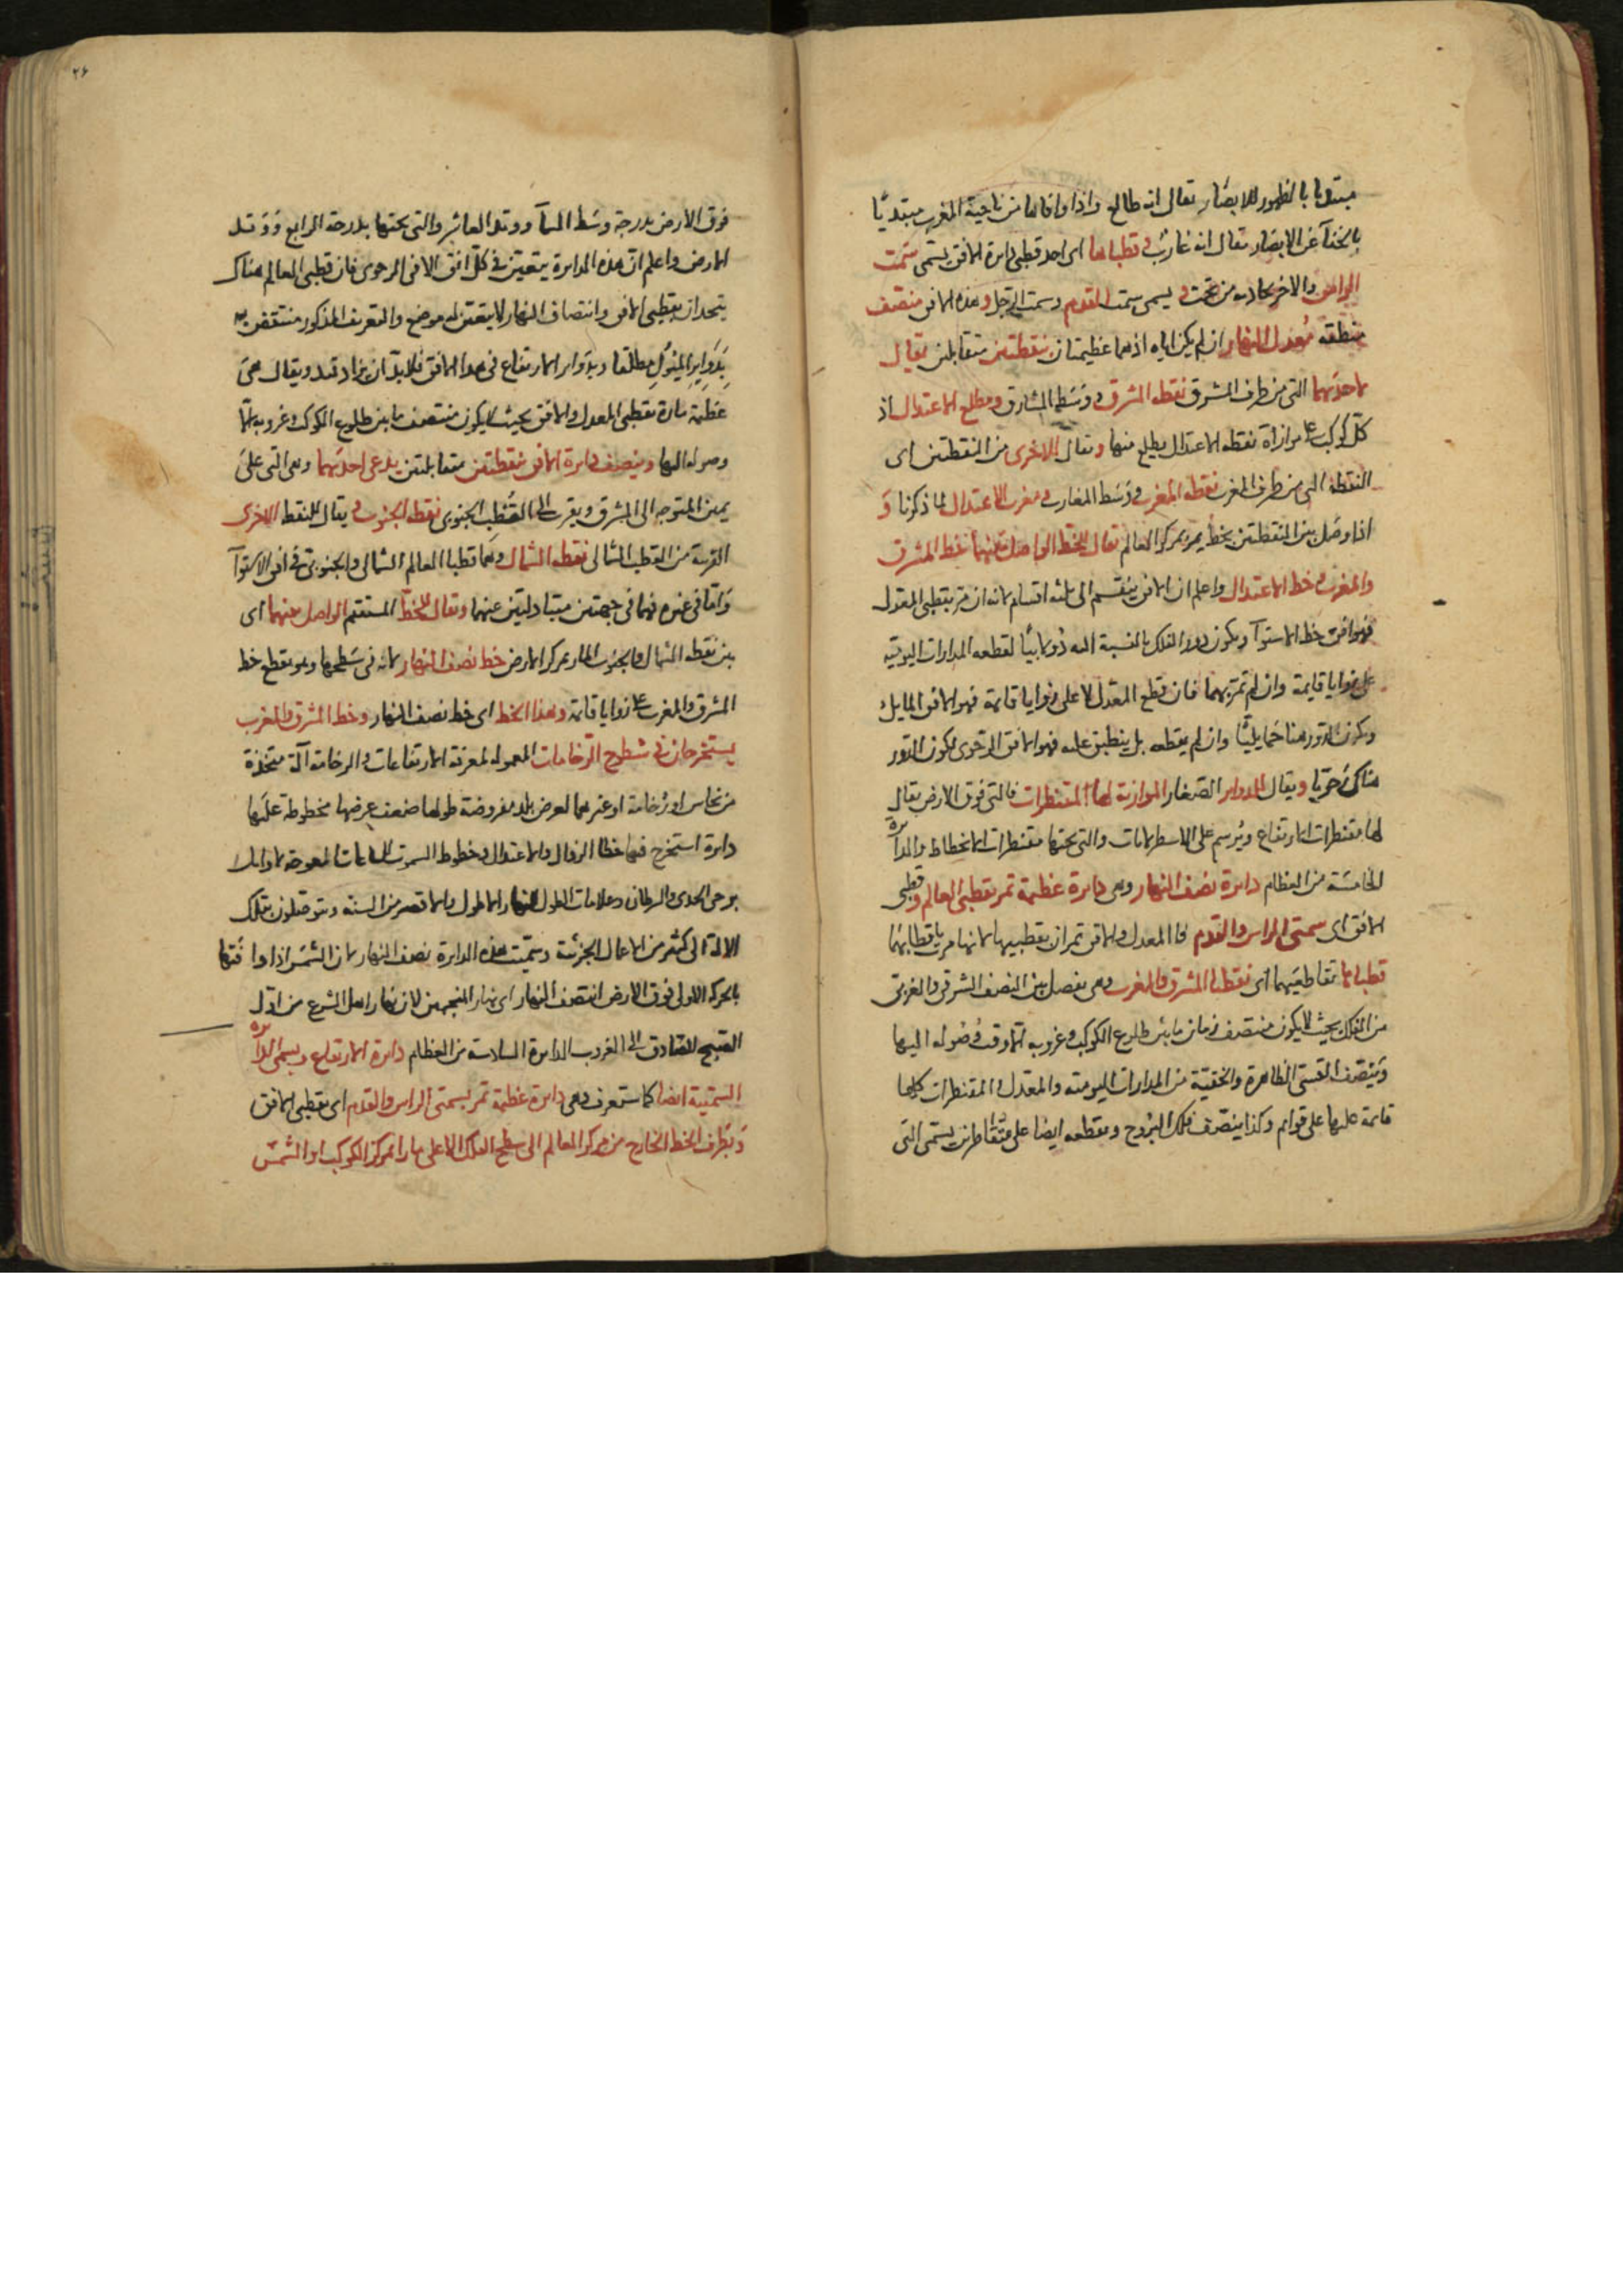 مبتديا بالظهور للابصار يقال انه طالع واذا وافاها من ناحية المغرب مبتديا
بالخفآ عن الابصار يقال انه غارب و قطباها اى احد قطبى دائرة الافق يسمى سمت
الراس والاخر يحاذيه من تحت و يسمى سمت القدم وسمت الرجل و هذه الافق منصف
منطقة معدل النهار ان لم يكن اياه اذ هما عظيمتان بنقطتين متقابلتين يقال
لاحديهما التى من طرف المشرق نقطه المشرق و وسط المشارق ومطلع الاعتدال اذ
كل كوكب على موازاة نقطه الاعتدال يطلع منها ويقال للاخرى من النقطتين اى
النقطة التى من طرف المغرب نقطه المغرب و وسط المغارب و مغرب الاعتدال لما ذكرنا و
اذا وصل بين النقطتين بخط يمر بمركز العالم يقال للخط الواصل بينهما خط المشرق
والمغرب و خط الاعتدال واعلم ان الافق ينقسم الى ثلثه اقسام لانه ان مر بقطبى المعدل
فهو افق خط الاستوآ ويكون دور الفلك بالنسبة اليه دولابيا لقطعه المدارات اليومية
على زوايا قايمة وان لم تمر بهما فان قطع المعدل لا على زوايا قايمة فهو الافق المايل
ويكون الدور هنا حمايليا وان لم يقطعه بل ينطبق عليه فهو الافق الرحوى لكون الدور
هناك رحويا ويقال للدواير الصغار الموازية لها المقنطرات فالتى فوق الارض يقال
لها مقنطرات الارتفاع ويرسم على الاسطرلابات والتى تحتها مقنطرات الانحطاط والدائرة
الخامسة من العظام دائرة نصف النهار وهى دايرة عظيمة تمر بقطبى العالم وقطبى
الافق اى سمتى الراس والقدم فالمعدل والافق تمران بقطبيها لانها مرت باقطابهما
قطباها تقاطعيهما اى نقطتا المشرق والمغرب وهى تفصل بين النصف الشرقى والغربى
من الفلك بحيث يكون منتصف زمان ما بين طلوع الكوكب وغروبه ابدا وقت وصوله اليها
وينصف القسى الظاهرة والخفية من المدارات اليومية والمعدل والمقنطرات كلها
قايمة عليها على قوايم وكذا ينصف فلك البروج ويقطعه ايضا على متقاطرتين يسمى التى
۲۶
فوق الارض بدرجة وسط السمآ ووتد العاشر والتى تحتها بدرجة الرابع ووتد
الارض واعلم ان هذه الدايرة يتعين فى كل افق الا فى الرحوى فان قطبى العالم هناك
يتحدان بقطبى الافق وانتصاف النهار لا يتعين له موضع والتعريف المذكور منتقض به
بدواير الميول مطلقا وبدواير الارتفاع فى هذا الافق فلا بد ان يزاد قيد ويقال هى
عظيمة مارة بقطبى المعدل والافق بحيث يكون منتصف ما بين طلوع الكوكب وغروبه ابدا
وصوله اليها وينصف دايرة الافق بنقطتين متقابلتين يدعى احديهما وهى التى على
يمين المتوجه الى المشرق ويقرب الى القطب الجنوبى نقطه الجنوب و يقال للنقطه الاخرى
القريبة من القطب الشمالى نقطه الشمال وهما قطبا العالم الشمالى والجنوبى فى افق الاستوآ
واما فى غيره فهما فى جهتين متبادلتين عنهما ويقال للخط المستقيم الواصل بينهما اى
بين نقطه الشمال والجنوب المار بمركز الارض خط نصف النهار لانه فى سطحها وهو يقطع خط
المشرق والمغرب على زوايا قائمة وهذا الخط اى خط نصف النهار وخط المشرق والمغرب
يستخرجان فى سطوح الرخامات المعموله لمعرفة الارتفاعات والرخامة آلة متخذة
من نحاس او رخامة او غيرهما لعرض بلد مفروضة طولها ضعف عرضها مخطوطة عليها
دايرة استخرج فيها خطا الزوال والاعتدال وخطوط السموت الساعات المعوجة لاوايل
برجى الجدى والسرطان وعلامات الطول النهار الاطول والاقصر من السنه ويتوصلون بتلك
الالة الى كثير من الاعمال الجزئية وسميت هذه الدايرة نصف النهار لان الشمس اذا وافتها
بالحركة الاولى فوق الارض انتصف النهار اى نهار المنجمين لان نهار اهل الشرع من اول
الصبح الصادق الى الغروب الدايرة السادسة من العظام دايرة الارتفاع ويسمى الدائرة
السمتية ايضا كما ستعرف وهى دايرة عظيمة تمر بسمتى الراس والقدم اى بقطبى الافق
وبطرف الخط الخارج من مركز العالم الى سطح الفلك الاعلى مارا بمركز الكوكب او الشمس